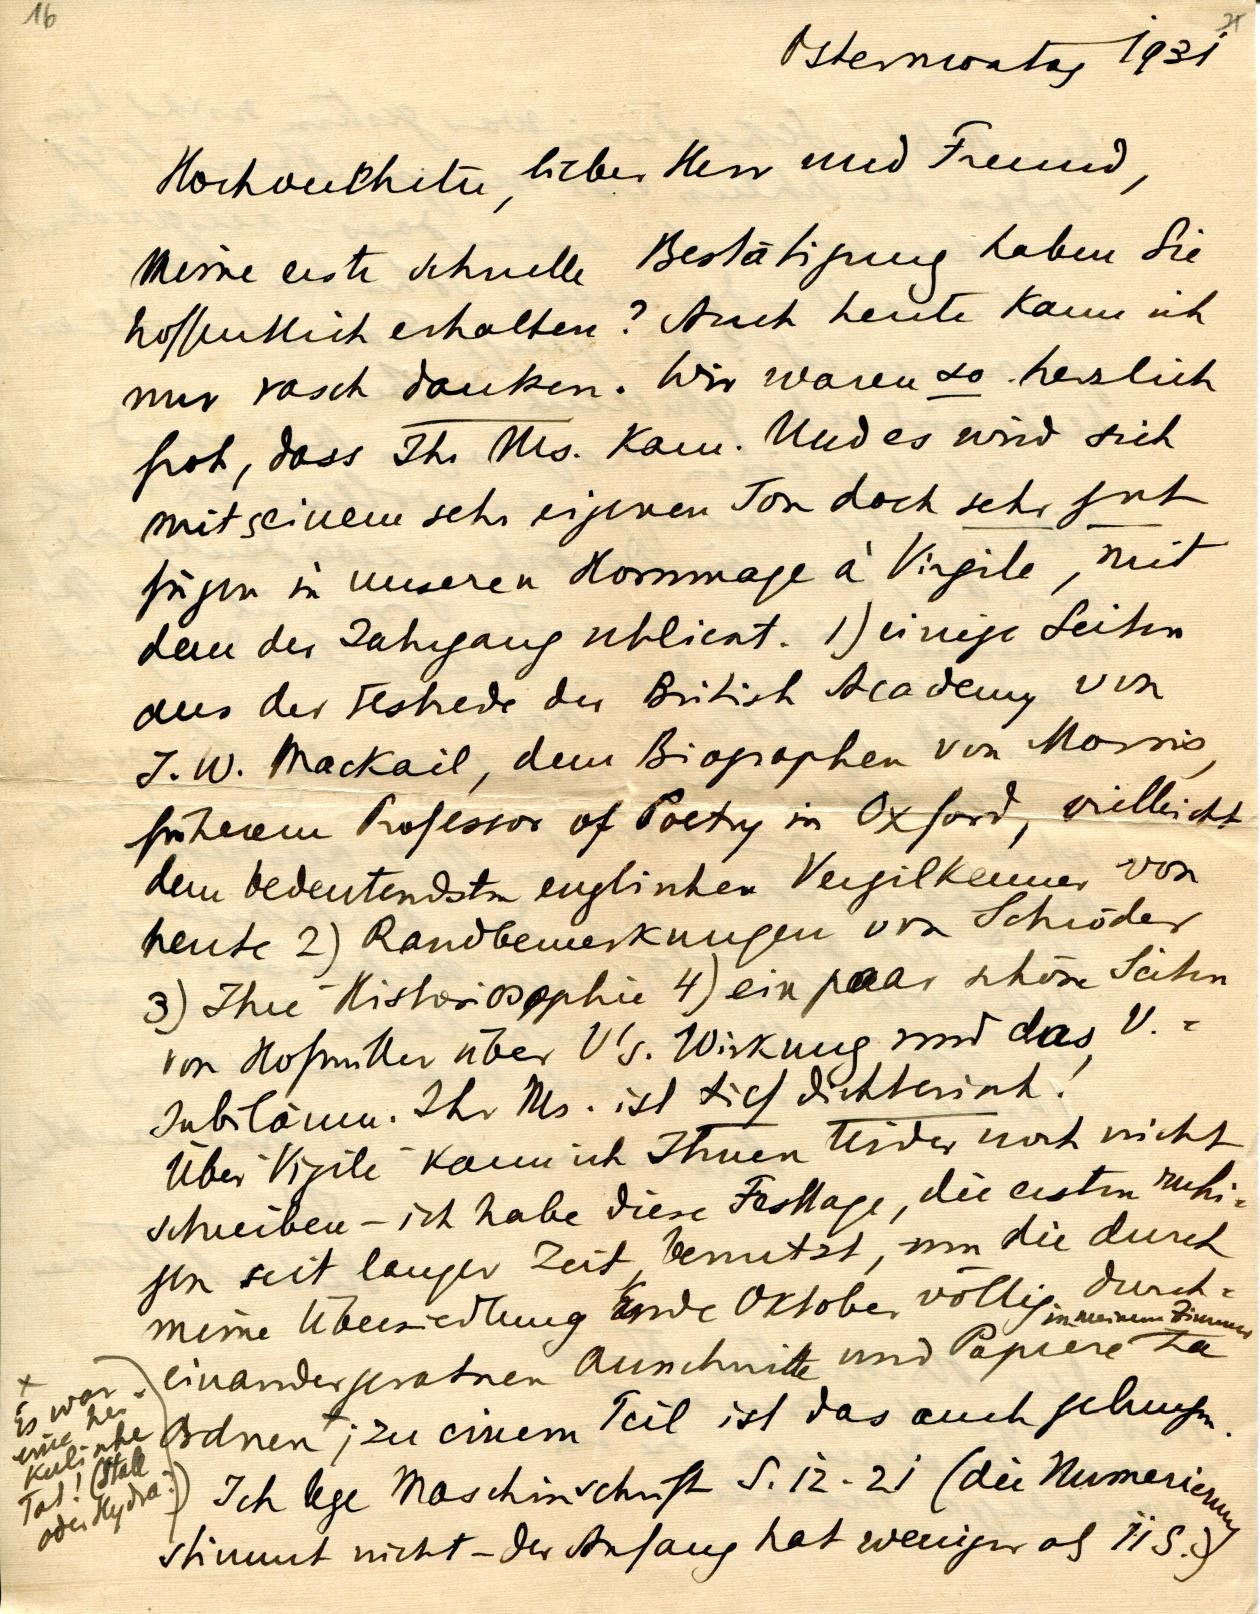 16
Ostermontag 1931
Hochverehrter, lieber Herr und Freund,
Meine erste schnelle Bestätigung haben Sie
hoffentlich erhalten? Auch heute kann ich
nur rasch danken. Wir waren so herzlich
froh, dass Ihr Ms. kam. Und es wird sich
mit seinem sehr eigenen Ton doch sehr gut
fügen in unseren Hommage à Virgile, mit
dem der Jahrgang schliesst. 1) einige Seiten
aus der Festrede der British Academy von
J. W. Mackail, dem Biographen von Morris,
früherem Professor of Poetry in Oxford, vielleicht
dem bedeutendsten englischen Vergilkenner von
heute 2) Randbemerkungen von Schröder
3) Ihre "Historiosophie 4) ein paar schöne Seiten
von Hofmiller über V's. Wirkung und das V.-
Jubiläum. Ihr Ms. ist tief dichterisch!
Über "Virgile" kann ich Ihnen leider noch nicht
schreiben – ich habe diese Festtage, die ersten ruhi-
gen seit langer Zeit, benutzt, um die durch
meine Übersiedlung Ende Oktober völlig durch-
einandergeratnen Ausschnitte und Papiere in meinem Zimmer zu
ordnen +; zu einem Teil ist das auch gelungen.
+ Es war
eine her-
kulische
Tat! (Stall
oder Hydra?)
Ich lege Maschinschrift S. 12-21 (die Numerierung
stimmt nicht – der Anfang hat weniger als 11 S.)